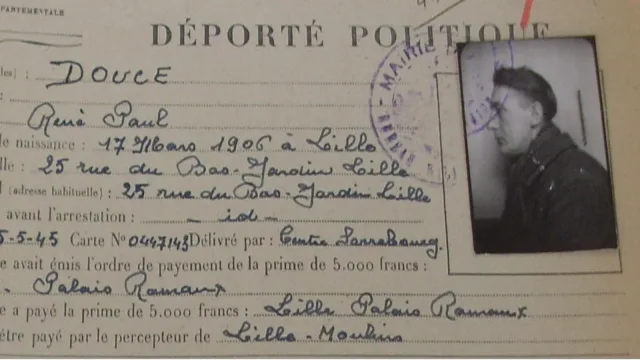 PARTEMENTALE
DÉPORTÉ POLITIQUE
MAIRIE
les) : DOUCE
René Paul
e naissance : 17 Mars 1906 à Lille
lle : 25 rue du Bas-Jardin Lille
l (adresse habituelle) : 25 rue du Bas-Jardin Lille
avant l'arrestation : - id -
5-5-45 Carte N° 0447143 Délivré par : Centre Sarrebourg.
e avait émis l'ordre de payement de la prime de 5.000 francs :
Palais Rameaux
e a payé la prime de 5.000 francs : Lille Palais Rameaux
être payé par le percepteur de Lille-Moulins